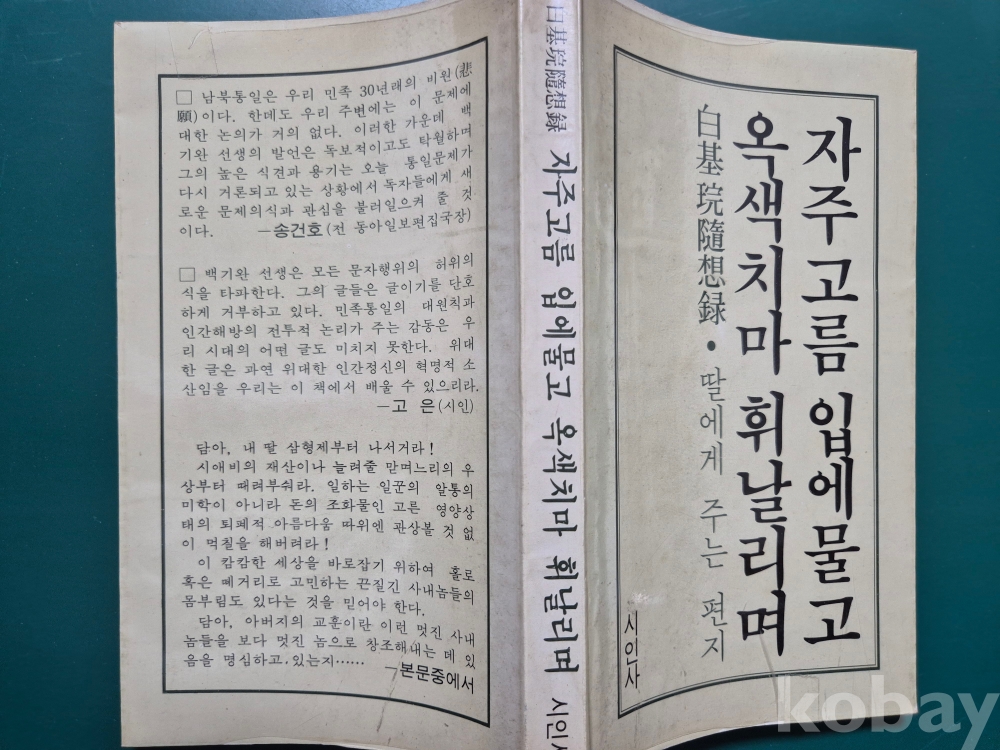 자주고름 입에물고
옥색치마 휘날리며
白基琓隨想録·딸에게 주는 편지
시인사
白基琓隨想録 자주고름 입에물고 옥색치마 휘날리며 시인사
□ 남북통일은 우리 민족 30년래의 비원(悲
願)이다. 한데도 우리 주변에는 이 문제에
대한 논의가 거의 없다. 이러한 가운데 백
기완 선생의 발언은 독보적이고도 탁월하며
그의 높은 식견과 용기는 오늘 통일문제가
다시 거론되고 있는 상황에서 독자들에게 새
로운 문제의식과 관심을 불러일으켜 줄 것
이다. —송건호(전 동아일보편집국장)
□ 백기완 선생은 모든 문자행위의 허위의
식을 타파한다. 그의 글들은 글이기를 단호
하게 거부하고 있다. 민족통일의 대원칙과
인간해방의 전투적 논리가 주는 감동은 우
리 시대의 어떤 글도 미치지 못한다. 위대
한 글은 과연 위대한 인간정신의 혁명적 소
산임을 우리는 이 책에서 배울 수 있으리라.
—고 은(시인)
담아, 내 딸 삼형제부터 나서거라!
시애비의 재산이나 늘려줄 맏며느리의 우
상부터 때려부숴라. 일하는 일꾼의 알통의
미학이 아니라 돈의 조화물인 고른 영양상
태의 퇴폐적 아름다움 따위엔 관상볼 것 없
이 먹칠을 해버려라!
이 캄캄한 세상을 바로잡기 위하여 홀로
혹은 떼거리로 고민하는 끈질긴 사내놈들의
몸부림도 있다는 것을 믿어야 한다.
담아, 아버지의 교훈이란 이런 멋진 사내
놈들을 보다 멋진 놈으로 창조해내는 데 있
음을 명심하고.있는지……
—본문중에서
kobay